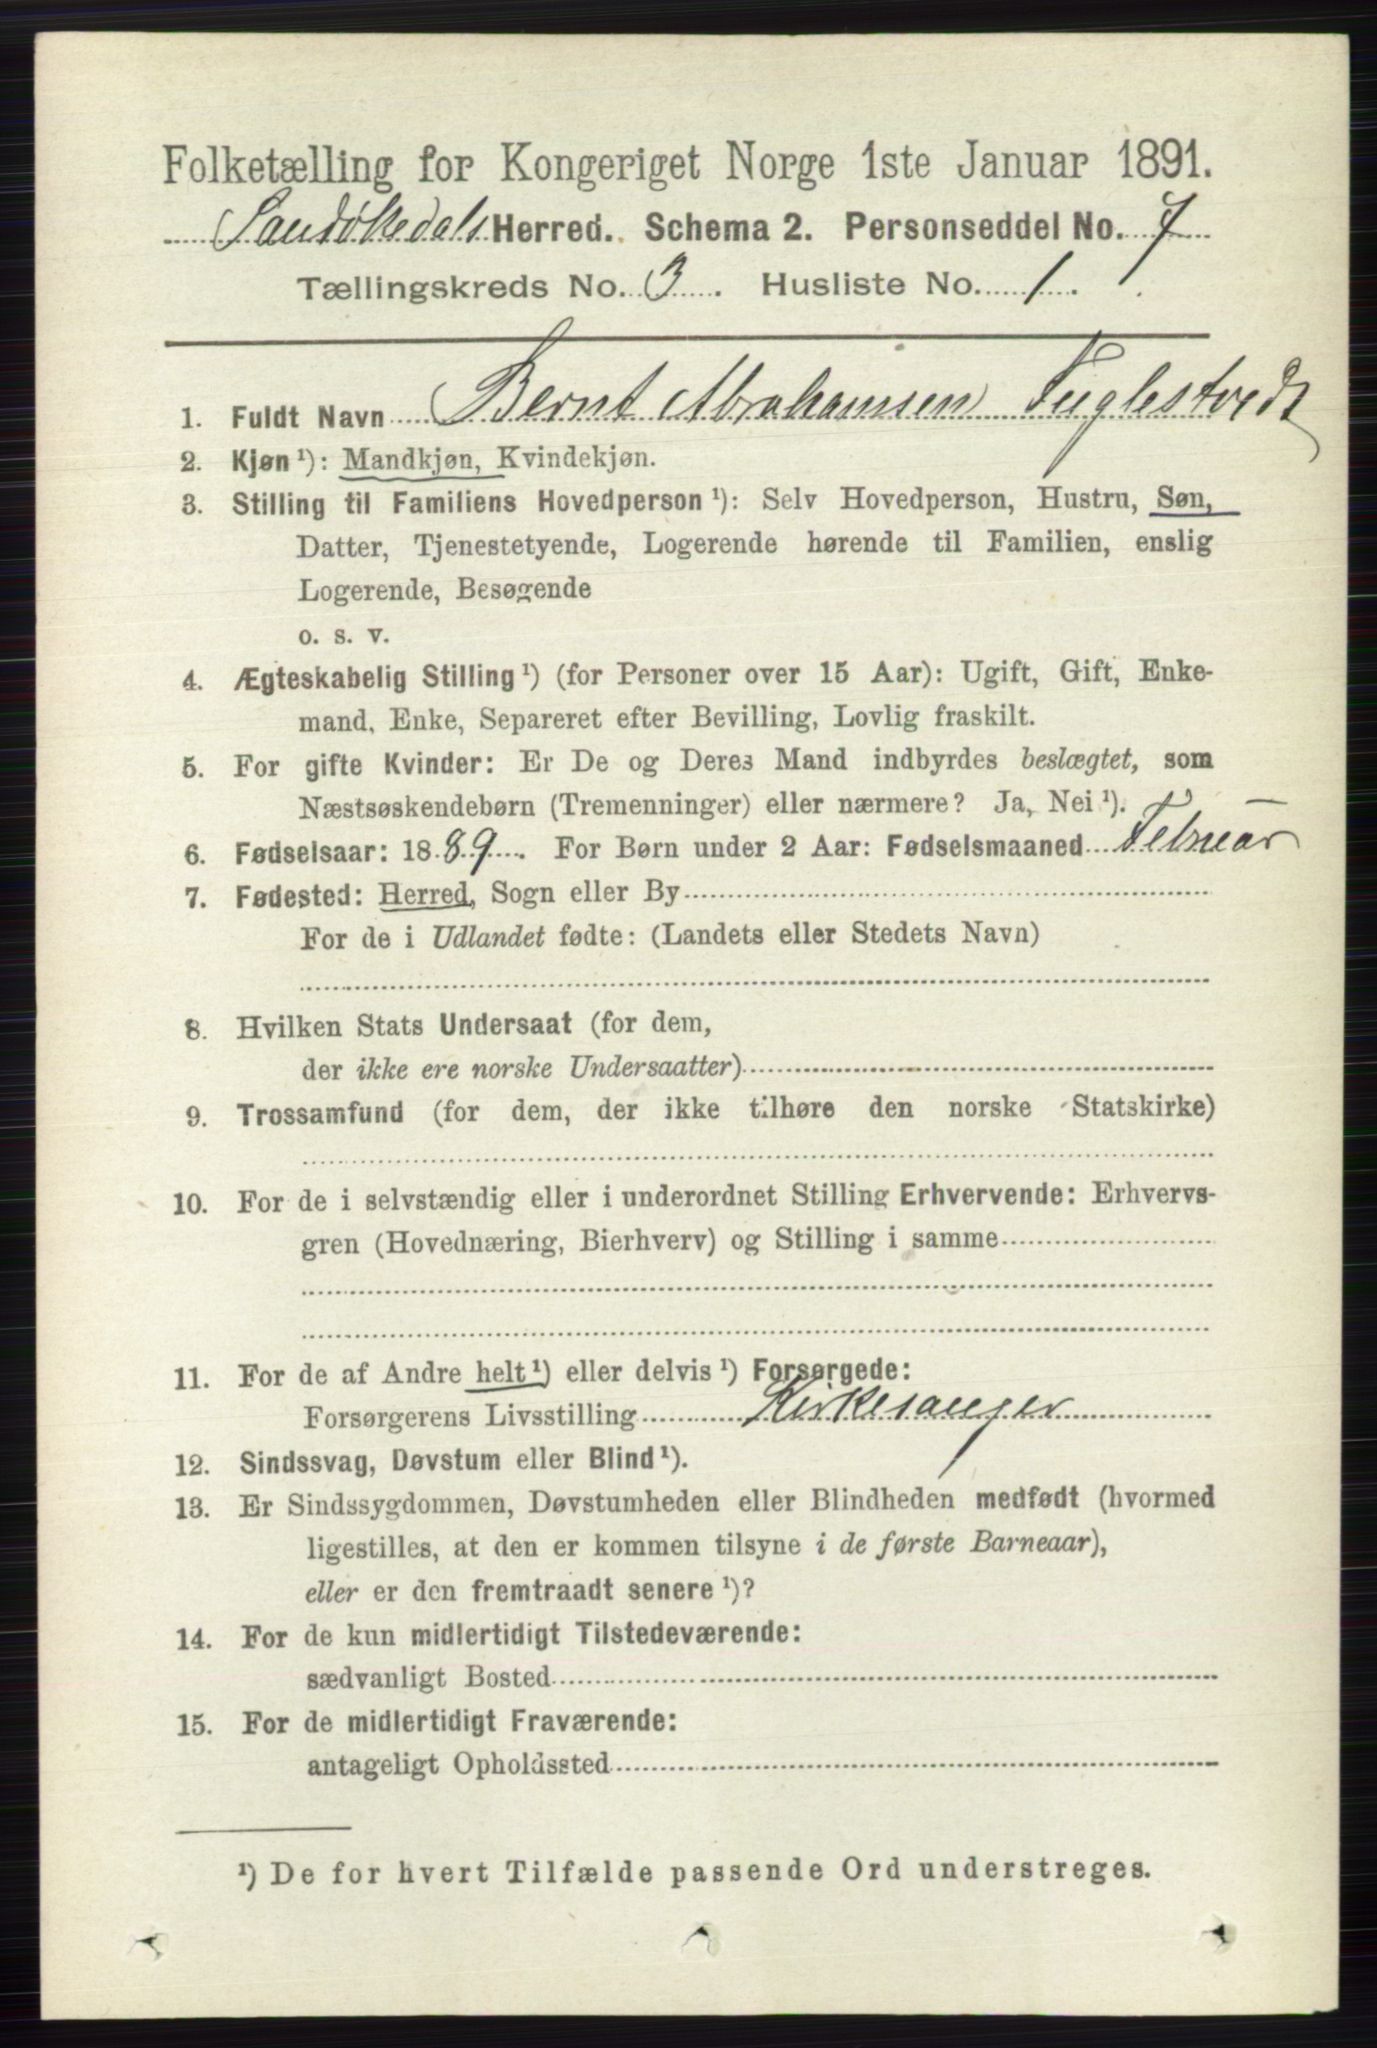 Folketælling for Kongeriget Norge 1ste Januar 1891.
Sandøkedals Herred. Schema 2. Personseddel No. 7
Tællingskreds No. 3. Husliste No. 1.
1. Fuldt Navn Bernt Abrahamsen Fuglestvedt
2. Kjøn ¹): Mandkjøn, Kvindekjøn.
3. Stilling til Familiens Hovedperson ¹): Selv Hovedperson, Hustru, Søn,
Datter, Tjenestetyende, Logerende hørende til Familien, enslig
Logerende, Besøgende
o. s. v.
4. Ægteskabelig Stilling ¹) (for Personer over 15 Aar): Ugift, Gift, Enke-
mand, Enke, Separeret efter Bevilling, Lovlig fraskilt.
5. For gifte Kvinder: Er De og Deres Mand indbyrdes beslægtet, som
Næstsøskendebørn (Tremenninger) eller nærmere? Ja, Nei ¹).
6. Fødselsaar: 1889. For Børn under 2 Aar: Fødselsmaaned Februar
7. Fødested: Herred, Sogn eller By
For de i Udlandet fødte: (Landets eller Stedets Navn)
8. Hvilken Stats Undersaat (for dem,
der ikke ere norske Undersaatter)
9. Trossamfund (for dem, der ikke tilhøre den norske Statskirke)
10. For de i selvstændig eller i underordnet Stilling Erhvervende: Erhvervs-
gren (Hovednæring, Bierhverv) og Stilling i samme
11. For de af Andre helt ¹) eller delvis ¹) Forsørgede:
Forsørgerens Livsstilling Kirkesanger
12. Sindssvag, Døvstum eller Blind ¹).
13. Er Sindssygdommen, Døvstumheden eller Blindheden medfødt (hvormed
ligestilles, at den er kommen tilsyne i de første Barneaar),
eller er den fremtraadt senere ¹)?
14. For de kun midlertidigt Tilstedeværende:
sædvanligt Bosted
15. For de midlertidigt Fraværende:
antageligt Opholdssted
¹) De for hvert Tilfælde passende Ord understreges.